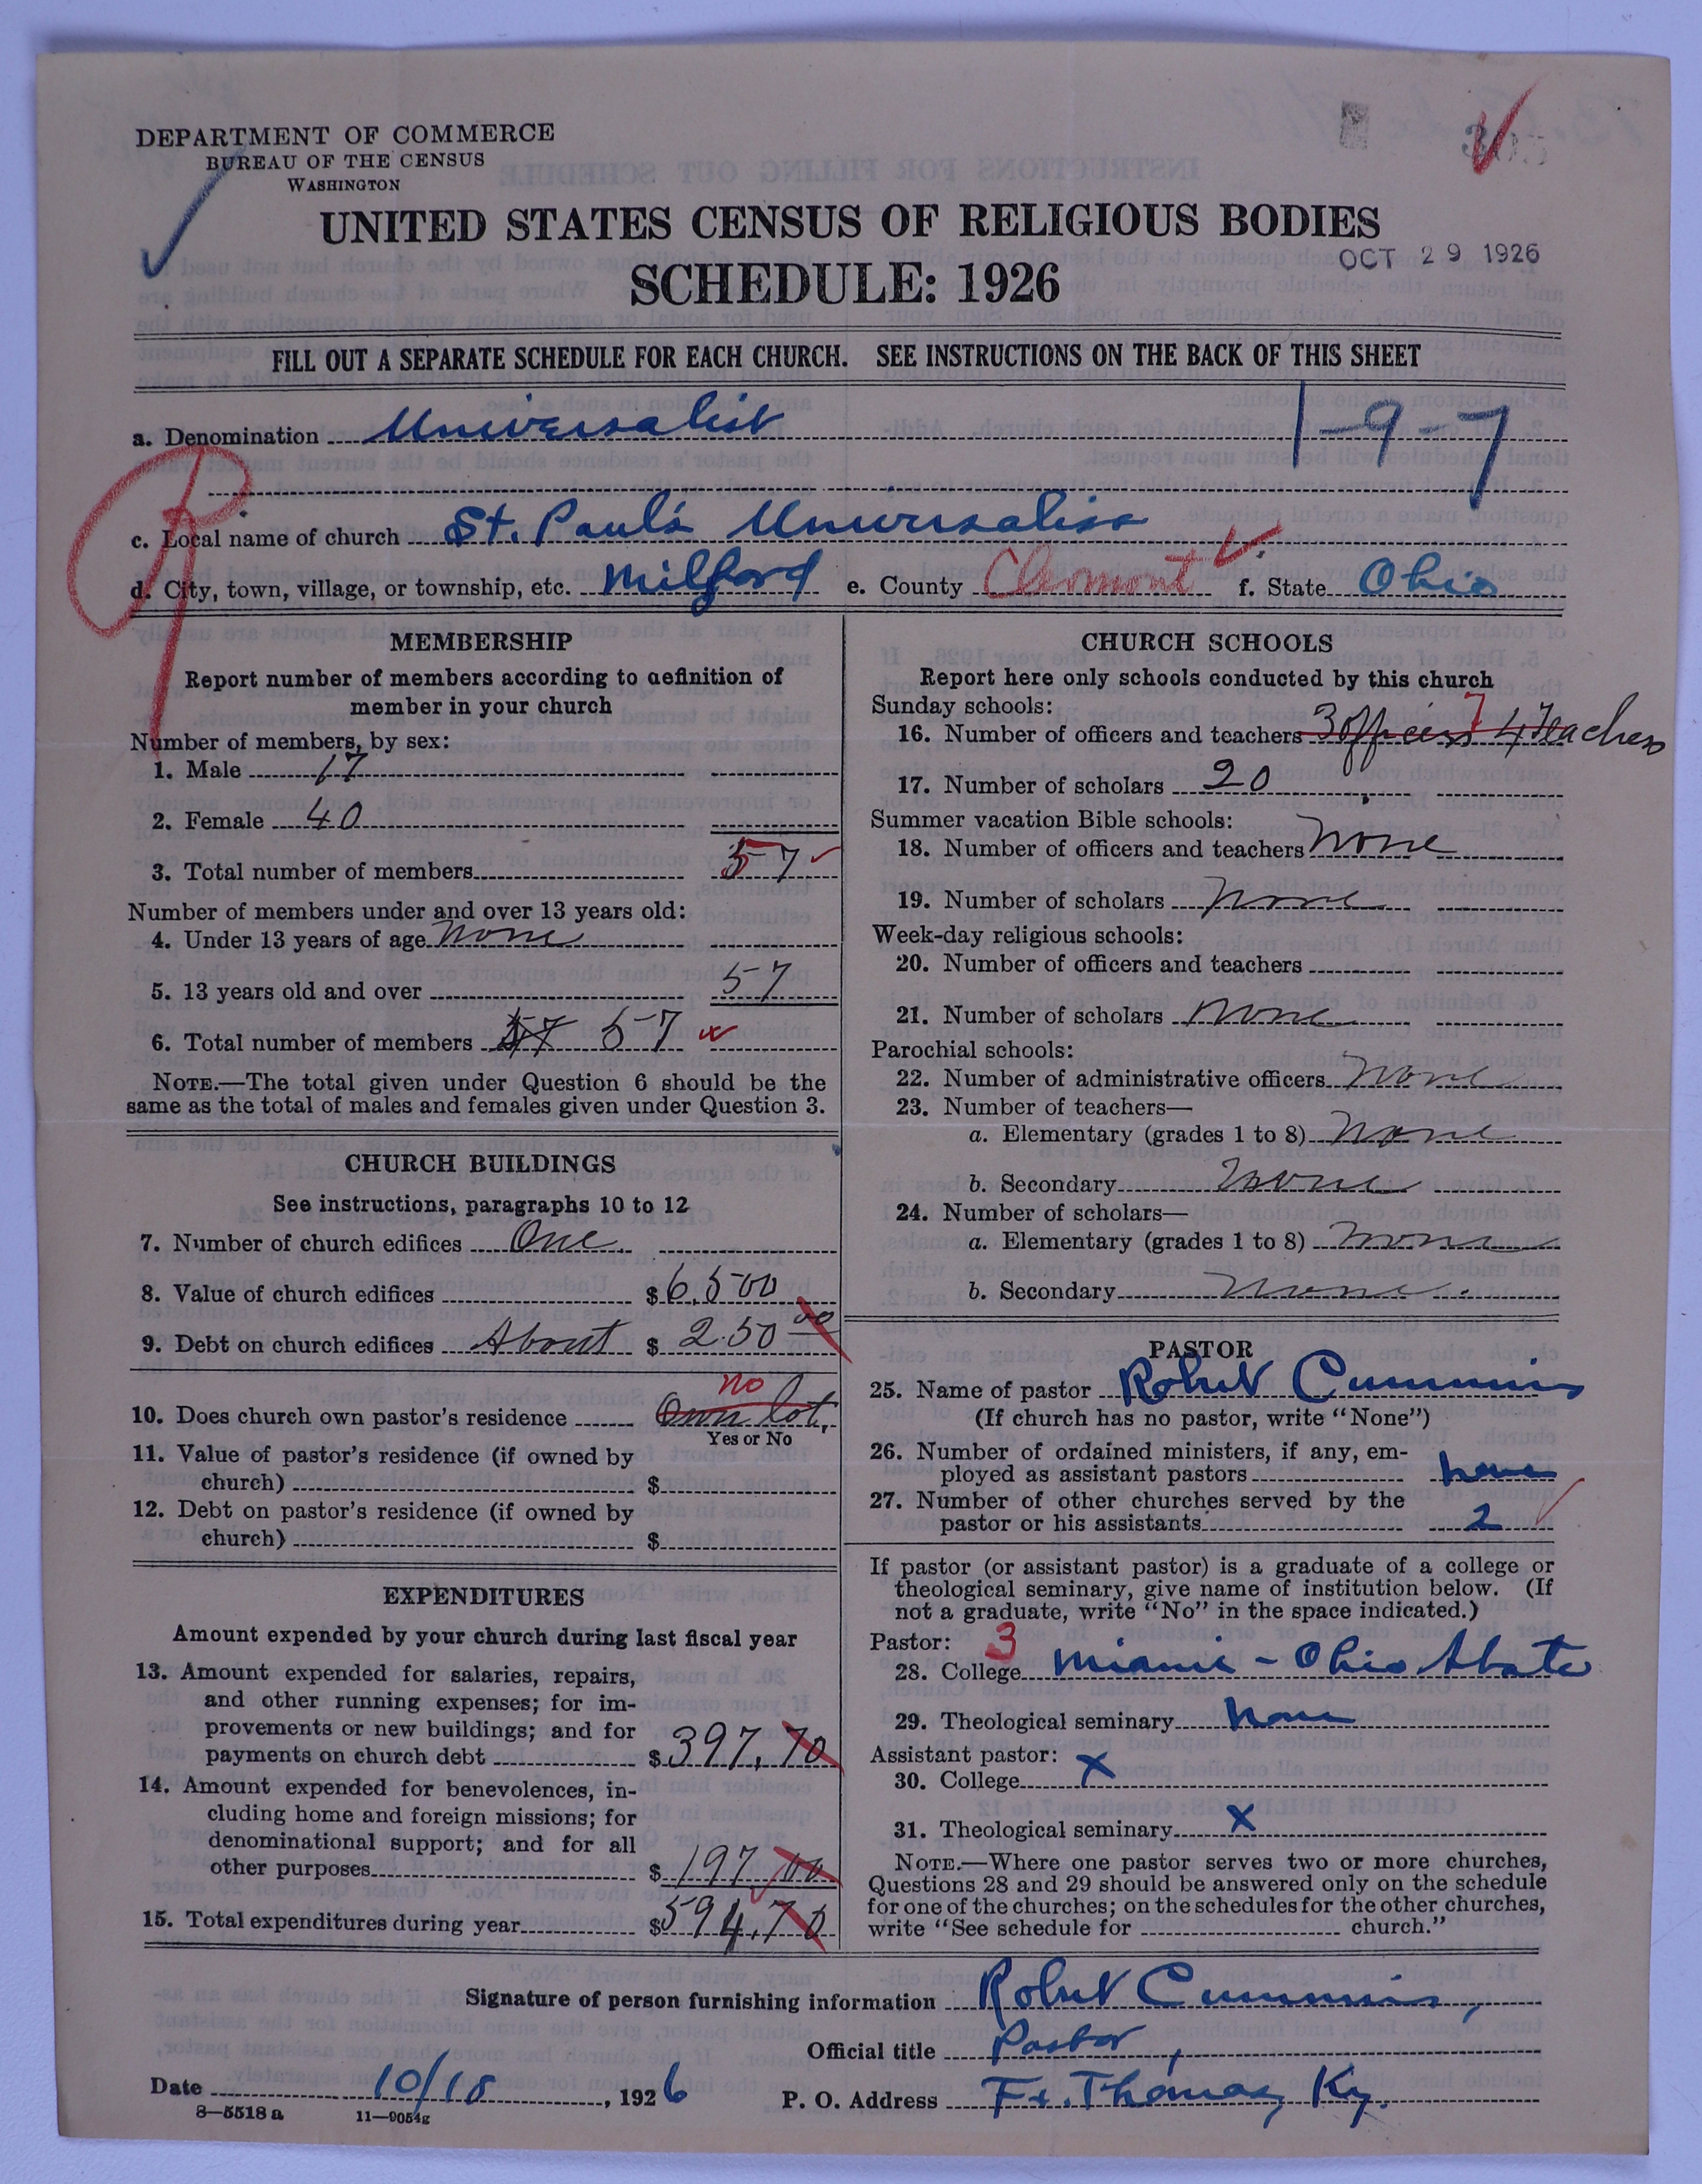 DEPARTMENT OF COMMERCE
BUREAU OF THE CENSUS
WASHINGTON
UNITED STATES CENSUS OF RELIGIOUS BODIES
OCT 29 1926
SCHEDULE: 1926
FILL OUT A SEPARATE SCHEDULE FOR EACH CHURCH. SEE INSTRUCTIONS ON THE BACK OF THIS SHEET
a. Denomination Universalist 1-9-7
c. Local name of church St. Paul's Universalist
d. City, town, village, or township, etc. Milford e. County Clermont f. State Ohio
MEMBERSHIP
Report number of members according to definition of
member in your church
Number of members, by sex:
1. Male 17
2. Female 40
3. Total number of members 57
Number of members under and over 13 years old:
4. Under 13 years of age none
5. 13 years old and over 57
6. Total number of members 57 57
NOTE.—The total given under Question 6 should be the
same as the total of males and females given under Question 3.
CHURCH BUILDINGS
See instructions, paragraphs 10 to 12
7. Number of church edifices One
8. Value of church edifices $6,500
9. Debt on church edifices About $ 250 00
no
10. Does church own pastor's residence Own lot,
Yes or No
11. Value of pastor's residence (if owned by
church) $
12. Debt on pastor's residence (if owned by
church) $
EXPENDITURES
Amount expended by your church during last fiscal year
13. Amount expended for salaries, repairs,
and other running expenses; for im-
provements or new buildings; and for
payments on church debt $397.70
14. Amount expended for benevolences, in-
cluding home and foreign missions; for
denominational support; and for all
other purposes $197.00
15. Total expenditures during year $594.70
CHURCH SCHOOLS
Report here only schools conducted by this church
Sunday schools: 7
16. Number of officers and teachers 3 officers 4 Teachers
17. Number of scholars 20
Summer vacation Bible schools:
18. Number of officers and teachers none
19. Number of scholars none
Week-day religious schools:
20. Number of officers and teachers
21. Number of scholars none
Parochial schools:
22. Number of administrative officers none
23. Number of teachers—
a. Elementary (grades 1 to 8) none
b. Secondary none
24. Number of scholars—
a. Elementary (grades 1 to 8) none
b. Secondary none
PASTOR
25. Name of pastor Robert Cummins
(If church has no pastor, write "None")
26. Number of ordained ministers, if any, em-
ployed as assistant pastors none
27. Number of other churches served by the
pastor or his assistants 2
If pastor (or assistant pastor) is a graduate of a college or
theological seminary, give name of institution below. (If
not a graduate, write "No" in the space indicated.)
Pastor: 3
28. College Miami - Ohio State
29. Theological seminary none
Assistant pastor:
30. College X
31. Theological seminary X
NOTE.—Where one pastor serves two or more churches,
Questions 28 and 29 should be answered only on the schedule
for one of the churches; on the schedules for the other churches,
write "See schedule for church."
Signature of person furnishing information Robert Cummins,
Official title Pastor,
Date 10/18, 1926 P. O. Address Ft. Thomas, Ky.
8—5518a 11—9054g